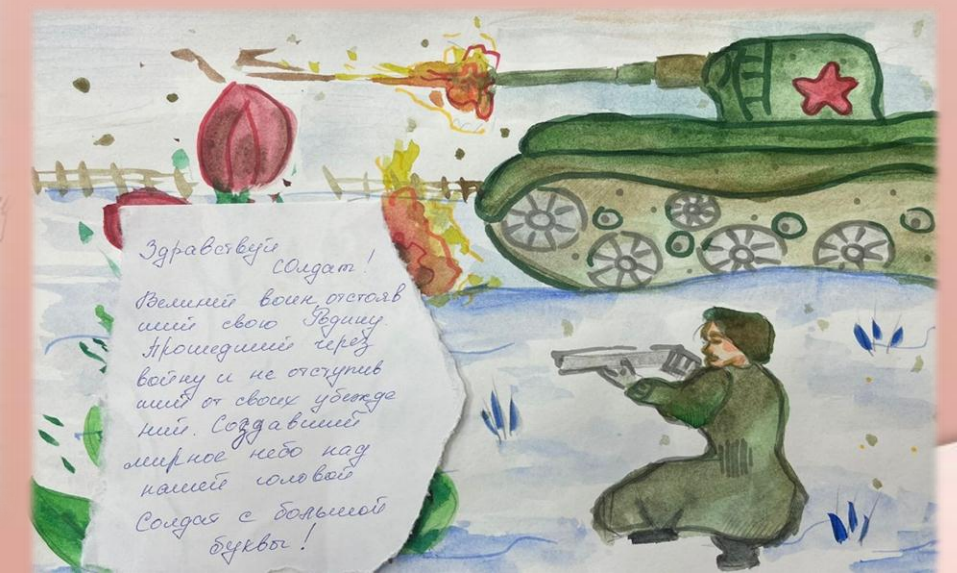 Здравствуй
Солдат!
Великий воин, отстояв
ший свою Родину.
Прошедший через
войну и не отступив
ший от своих убежде
ний. Создавший
мирное небо над
нашей головой
Солдат с большой
буквы!